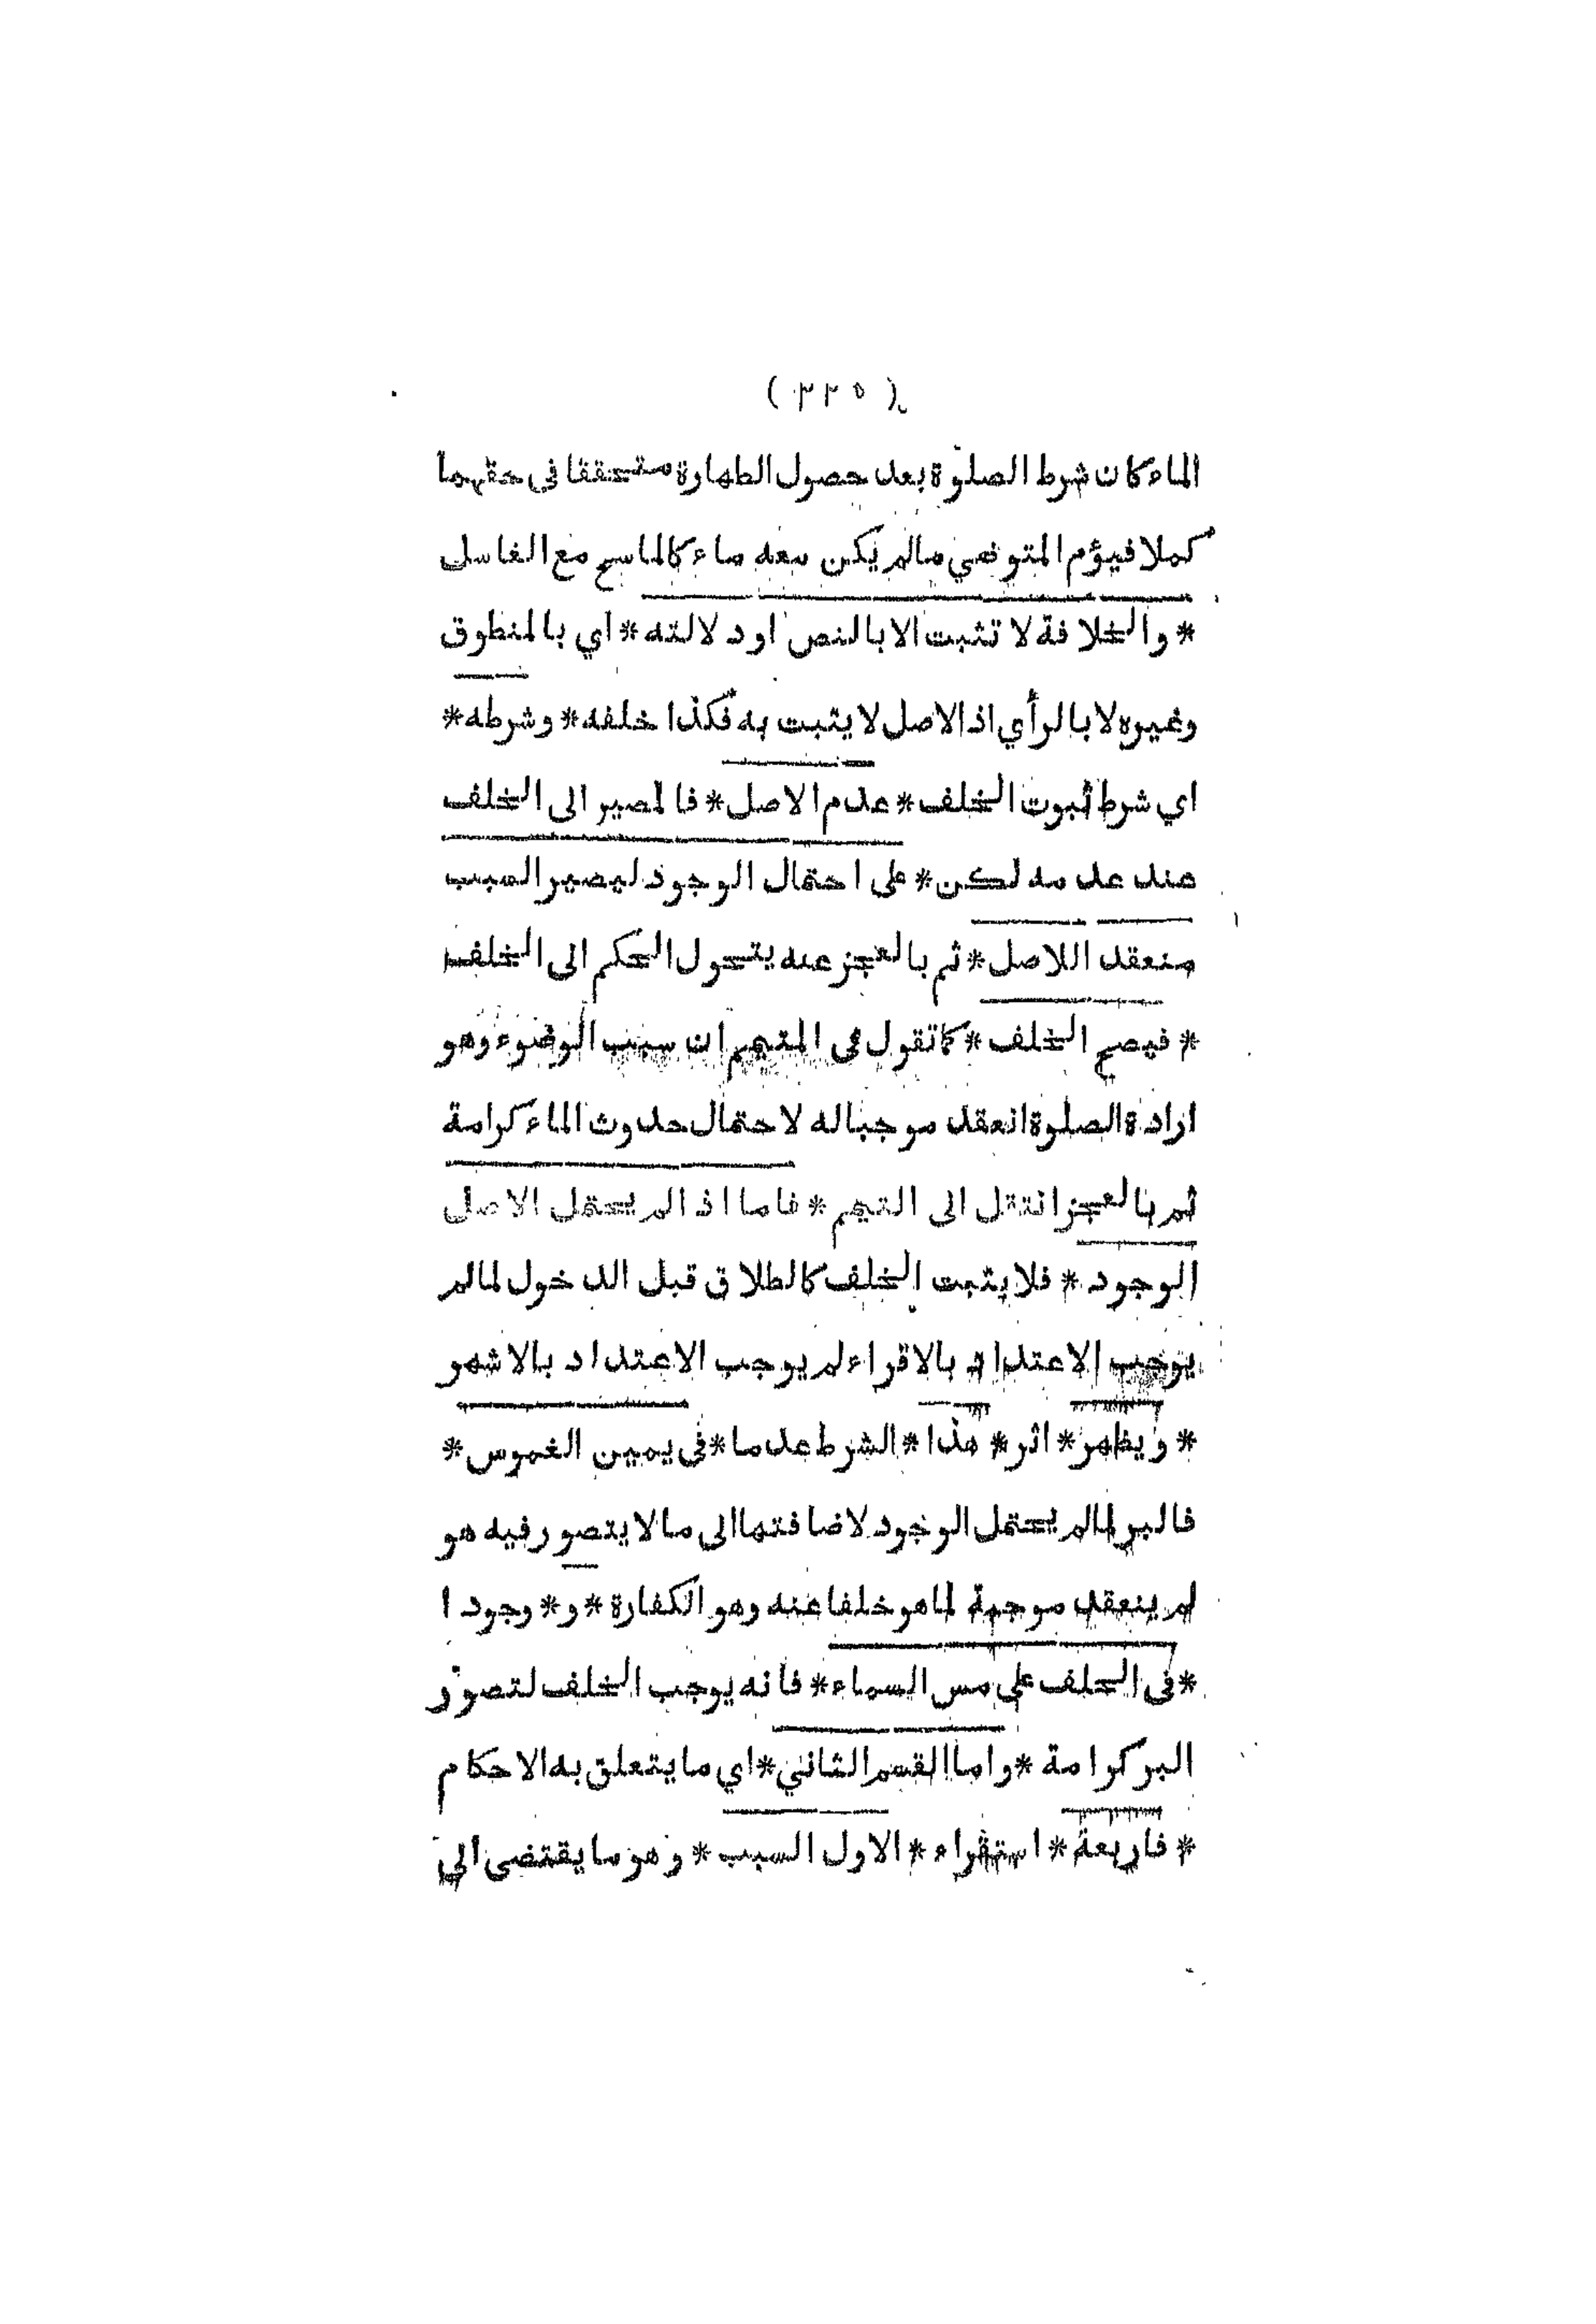 ( ٣٢٥ )
الماء كان شرط الصلوة بعد حصول الطهارة متحققا في حقهما
كملا فيؤم المتوضي مالم يكن معه ماء كالماسح مع الغاسل
* والخلافة لا تثبت الا بالنص اود لالته * اي بالمنطوق
وغيره لا بالرأي اذ الاصل لا يثبت به فكذا خلفه * وشرطه *
اي شرط ثبوت الخلف * عدم الاصل * فالمصير الى الخلف
عند عدمه لكن * على احتمال الوجود ليصير السبب
منعقد اللاصل * ثم بالعجز عنه يتحول الحكم الى الخلف
* فيصح الخلف * كما تقول في المتيمم ان سبب الوضوء وهو
ارادة الصلوة انعقد موجباله لاحتمال حدوث الماء كرامة
ثم بالعجز انتقل الى التيمم * فاما اذ الم يحتمل الاصل
الوجود * فلا يثبت الخلف كالطلاق قبل الدخول لمالم
يوجب الاعتداد بالاقراء لم يوجب الاعتداد بالاشهو
* ويظهر * اثر * هذا * الشرط عدما * في يمين الغموس *
فالبر لمالم يحتمل الوجود لاضافتها الى ما لا يتصور فيه هو
لم ينعقد موجبة لماهو خلفا عنه وهو الكفارة * و * وجود ا
* في الحلف على مس السماء * فانه يوجب الخلف لتصور
البر كرامة * واما القسم الثاني * اي ما يتعلق به الاحكام
* فاربعة * استقراء * الاول السبب * وهو ما يقتضى الى